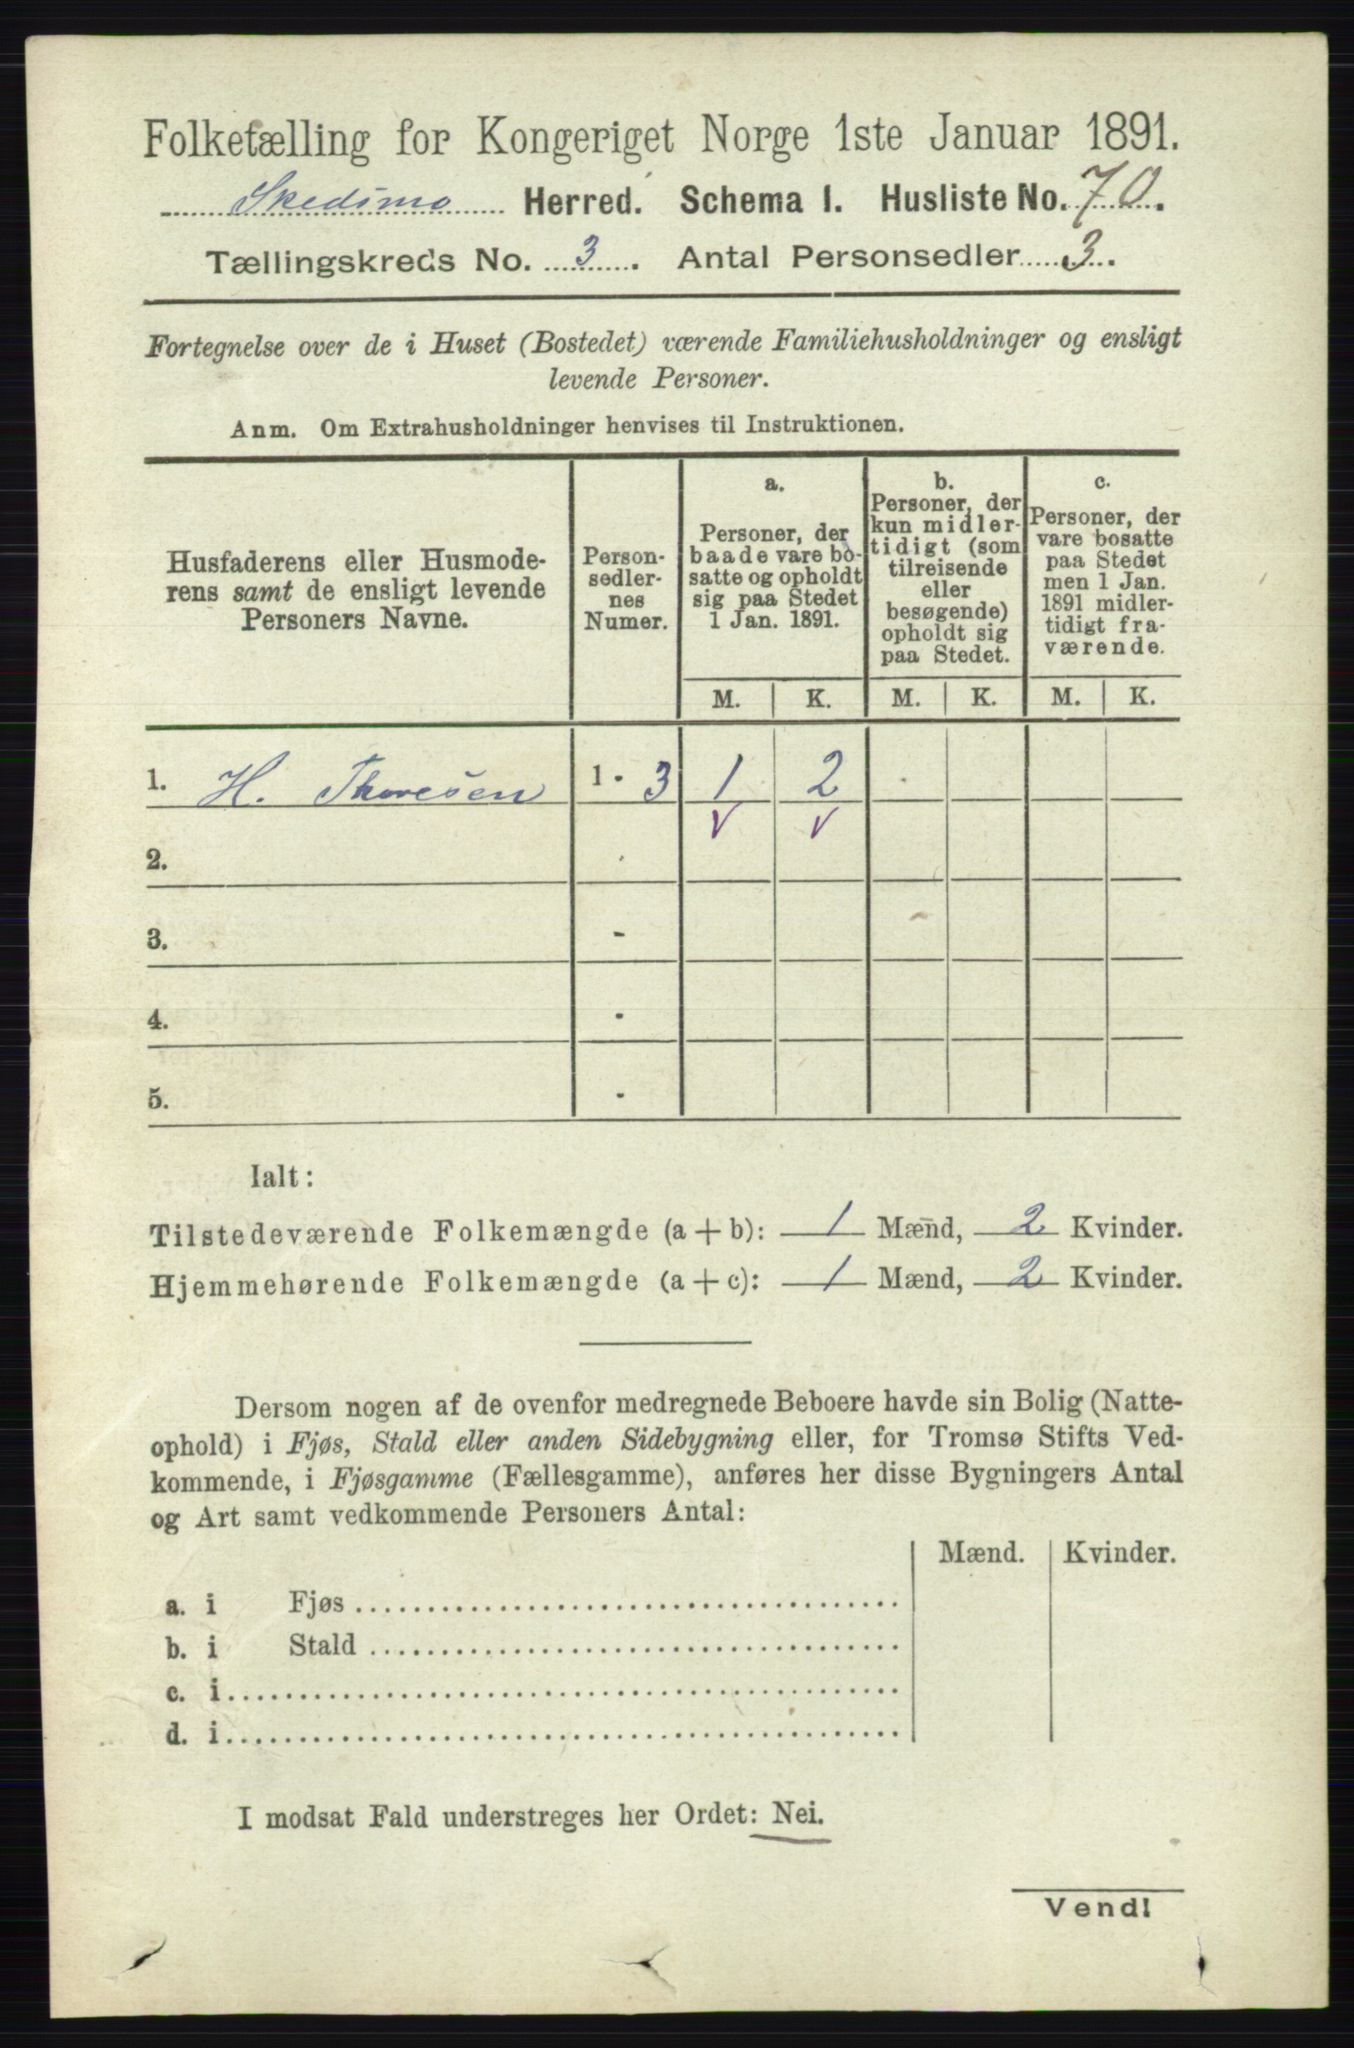 Folketælling for Kongeriget Norge 1ste Januar 1891.
Skedsmo Herred. Schema 1. Husliste No. 70.
Tællingskreds No. 3. Antal Personsedler 3.
Fortegnelse over de i Huset (Bostedet) værende Familiehusholdninger og ensligt
levende Personer.
Anm. Om Extrahusholdninger henvises til Instruktionen.
Husfaderens eller Husmode-
rens samt de ensligt levende
Personers Navne.
Person-
sedler-
nes
Numer.
a.
Personer, der
baade vare bo-
satte og opholdt
sig paa Stedet
1 Jan. 1891.
b.
Personer, der
kun midler-
tidigt (som
tilreisende
eller
besøgende)
opholdt sig
paa Stedet.
c.
Personer, der
vare bosatte
paa Stedet
men 1 Jan.
1891 midler-
tidigt fra-
værende.
M. K. M. K. M. K.
1. H. Thoresen 1 - 3 1 2
2.
3. -
4. -
5. -
Ialt:
Tilstedeværende Folkemængde (a + b): 1 Mænd, 2 Kvinder.
Hjemmehørende Folkemængde (a + c): 1 Mænd, 2 Kvinder.
Dersom nogen af de ovenfor medregnede Beboere havde sin Bolig (Natte-
ophold) i Fjøs, Stald eller anden Sidebygning eller, for Tromsø Stifts Ved-
kommende, i Fjøsgamme (Fællesgamme), anføres her disse Bygningers Antal
og Art samt vedkommende Personers Antal:
Mænd. Kvinder.
a. i Fjøs
b. i Stald
c. i
d. i
I modsat Fald understreges her Ordet: Nei.
Vend!